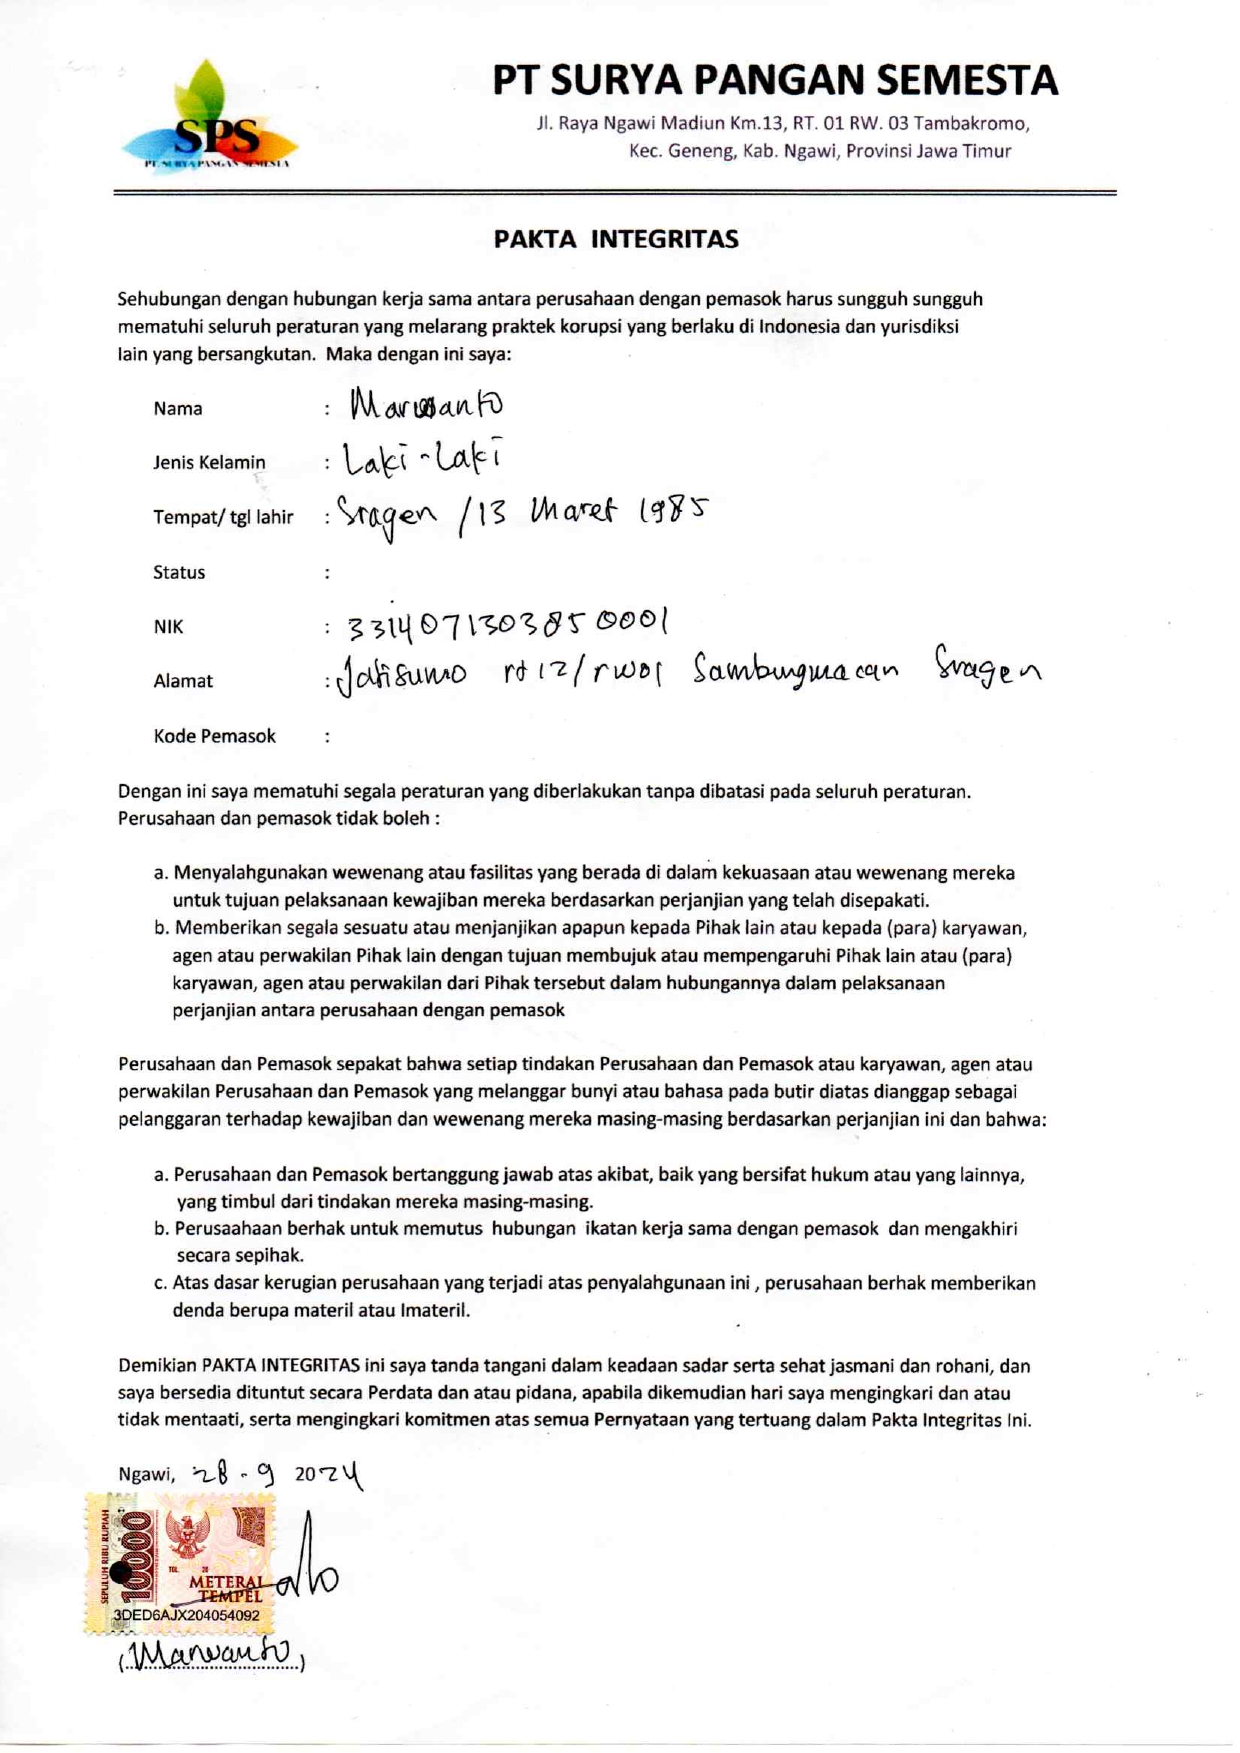 SPS
PT. SURYA PANGAN SEMESTA
PT SURYA PANGAN SEMESTA
Jl. Raya Ngawi Madiun Km.13, RT. 01 RW. 03 Tambakromo,
Kec. Geneng, Kab. Ngawi, Provinsi Jawa Timur
PAKTA INTEGRITAS
Sehubungan dengan hubungan kerja sama antara perusahaan dengan pemasok harus sungguh sungguh
mematuhi seluruh peraturan yang melarang praktek korupsi yang berlaku di Indonesia dan yurisdiksi
lain yang bersangkutan. Maka dengan ini saya:
Nama : Marwanto
Jenis Kelamin : Laki-Laki
Tempat/ tgl lahir : Sragen /13 Maret 1985
Status :
NIK : 3314071303850001
Alamat : Jatisumo rt 12/rw01 Sambungmacan Sragen
Kode Pemasok :
Dengan ini saya mematuhi segala peraturan yang diberlakukan tanpa dibatasi pada seluruh peraturan.
Perusahaan dan pemasok tidak boleh :
a. Menyalahgunakan wewenang atau fasilitas yang berada di dalam kekuasaan atau wewenang mereka
untuk tujuan pelaksanaan kewajiban mereka berdasarkan perjanjian yang telah disepakati.
b. Memberikan segala sesuatu atau menjanjikan apapun kepada Pihak lain atau kepada (para) karyawan,
agen atau perwakilan Pihak lain dengan tujuan membujuk atau mempengaruhi Pihak lain atau (para)
karyawan, agen atau perwakilan dari Pihak tersebut dalam hubungannya dalam pelaksanaan
perjanjian antara perusahaan dengan pemasok
Perusahaan dan Pemasok sepakat bahwa setiap tindakan Perusahaan dan Pemasok atau karyawan, agen atau
perwakilan Perusahaan dan Pemasok yang melanggar bunyi atau bahasa pada butir diatas dianggap sebagai
pelanggaran terhadap kewajiban dan wewenang mereka masing-masing berdasarkan perjanjian ini dan bahwa:
a. Perusahaan dan Pemasok bertanggung jawab atas akibat, baik yang bersifat hukum atau yang lainnya,
yang timbul dari tindakan mereka masing-masing.
b. Perusaahaan berhak untuk memutus hubungan ikatan kerja sama dengan pemasok dan mengakhiri
secara sepihak.
c. Atas dasar kerugian perusahaan yang terjadi atas penyalahgunaan ini , perusahaan berhak memberikan
denda berupa materil atau Imateril.
Demikian PAKTA INTEGRITAS ini saya tanda tangani dalam keadaan sadar serta sehat jasmani dan rohani, dan
saya bersedia dituntut secara Perdata dan atau pidana, apabila dikemudian hari saya mengingkari dan atau
tidak mentaati, serta mengingkari komitmen atas semua Pernyataan yang tertuang dalam Pakta Integritas Ini.
Ngawi, 28 - 9 2024
SEPULUH RIBU RUPIAH
10000
TGL. 20
METERAI
TEMPEL
3DED6AJX204054092
(Marwanto)